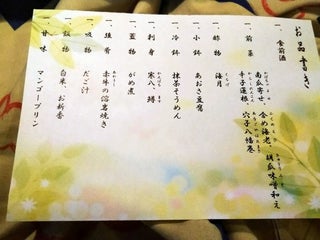 お品書き
一、食前酒
一、前菜
南瓜寄せ、含め海老、胡瓜味噌和え
辛子蓮根、穴子八幡巻
一、酢物 海月
くらげ
一、小鉢 あおさ豆腐
一、冷鉢 抹茶そうめん
一、刺身 寒八、鱒
一、蓋物 がめ煮
一、強肴 赤牛の溶岩焼き
一、吸物 だご汁
一、飯物 白米、お新香
一、甘味 マンゴープリン